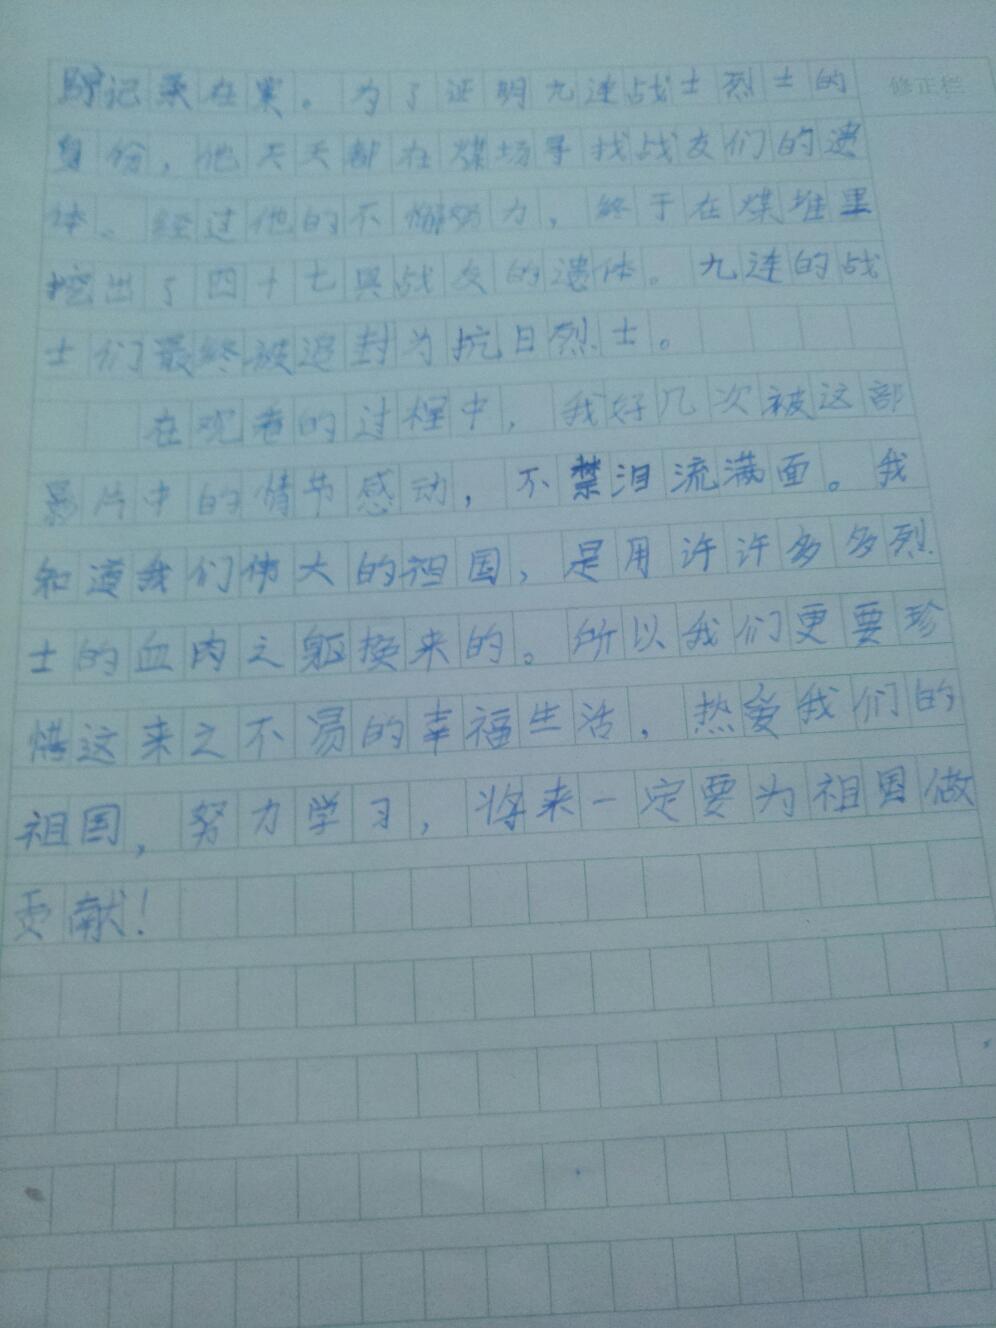 记录在案。为了证明九连战士烈士的 修正栏
身份，他天天都在煤场寻找战友们的遗
体、经过他的不懈努力，终于在煤堆里
挖出了四十七具战友的遗体。九连的战
士们最终被追封为抗日烈士。
在观看的过程中，我好几次被这部
影片中的情节感动，不禁泪流满面。我
知道我们伟大的祖国，是用许许多多烈
士的血肉之躯换来的。所以我们更要珍
惜这来之不易的幸福生活，热爱我们的
祖国，努力学习，将来一定要为祖国做
贡献！